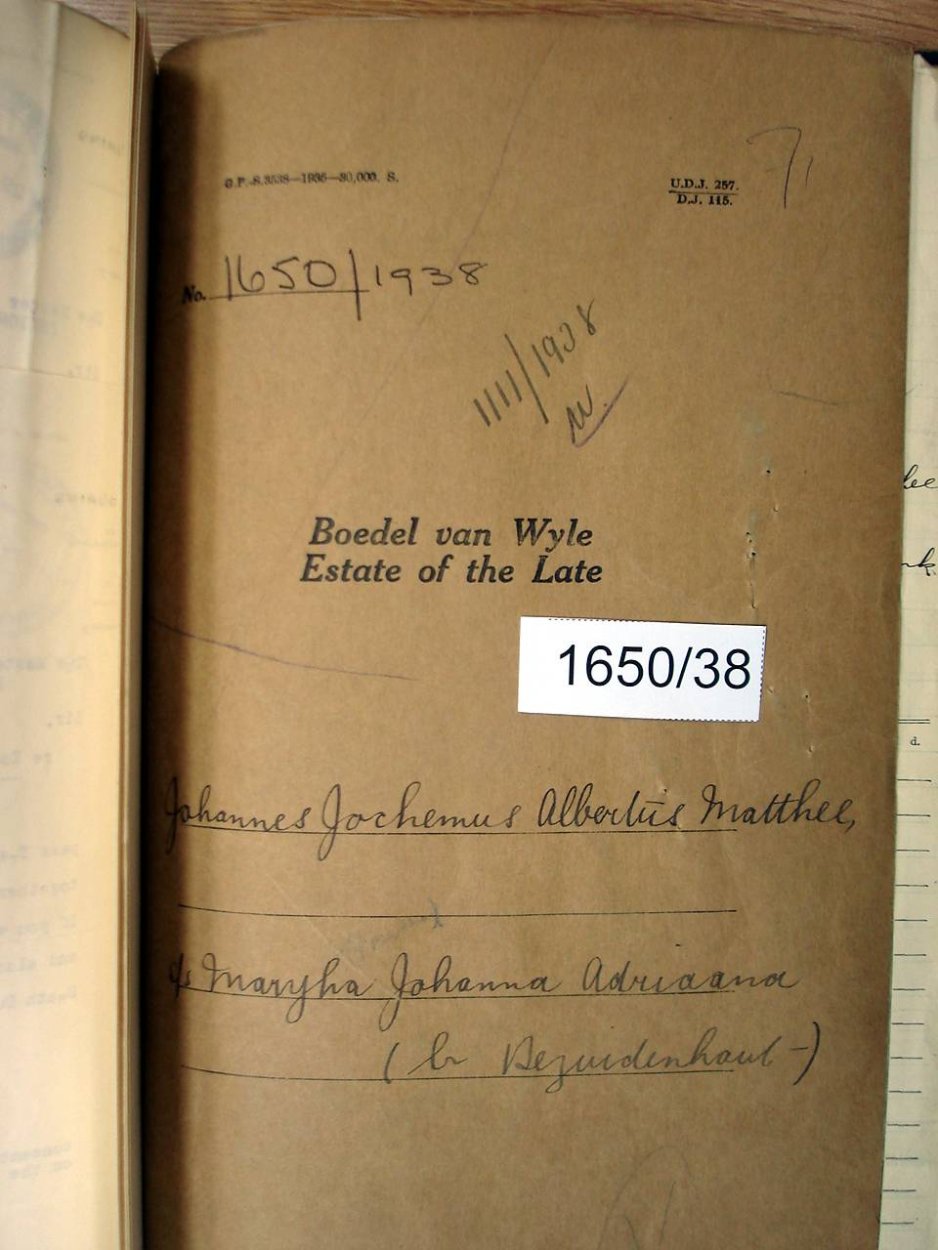 G.P.-S.3538—1936—30,000. S.
U.D.J. 257.
D.J. 115.
No. 1650/1938
1111/1938
Boedel van Wyle
Estate of the Late
1650/38
Johannes Jochemus Albertus Matthee,
Johanna Adriaana
(b Bezuidenhout-)
d.